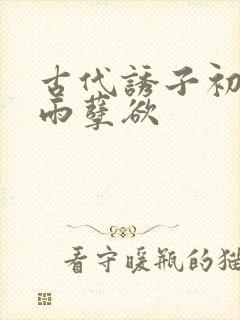 古代誘子初
雨孽欲
看守暖瓶的猫